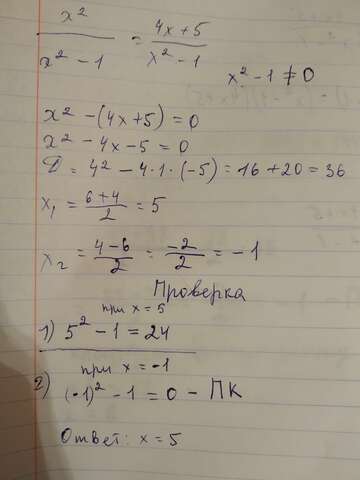 x²/(x² - 1) = (4x + 5)/(x² - 1)
x² - 1 ≠ 0
x² - (4x + 5) = 0
x² - 4x - 5 = 0
D = 4² - 4·1·(-5) = 16 + 20 = 36
x₁ = (6 + 4)/2 = 5
x₂ = (4 - 6)/2 = (-2)/2 = -1
Проверка
при x = 5
1) 5² - 1 = 24
при x = -1
2) (-1)² - 1 = 0 - ПК
Ответ: x = 5